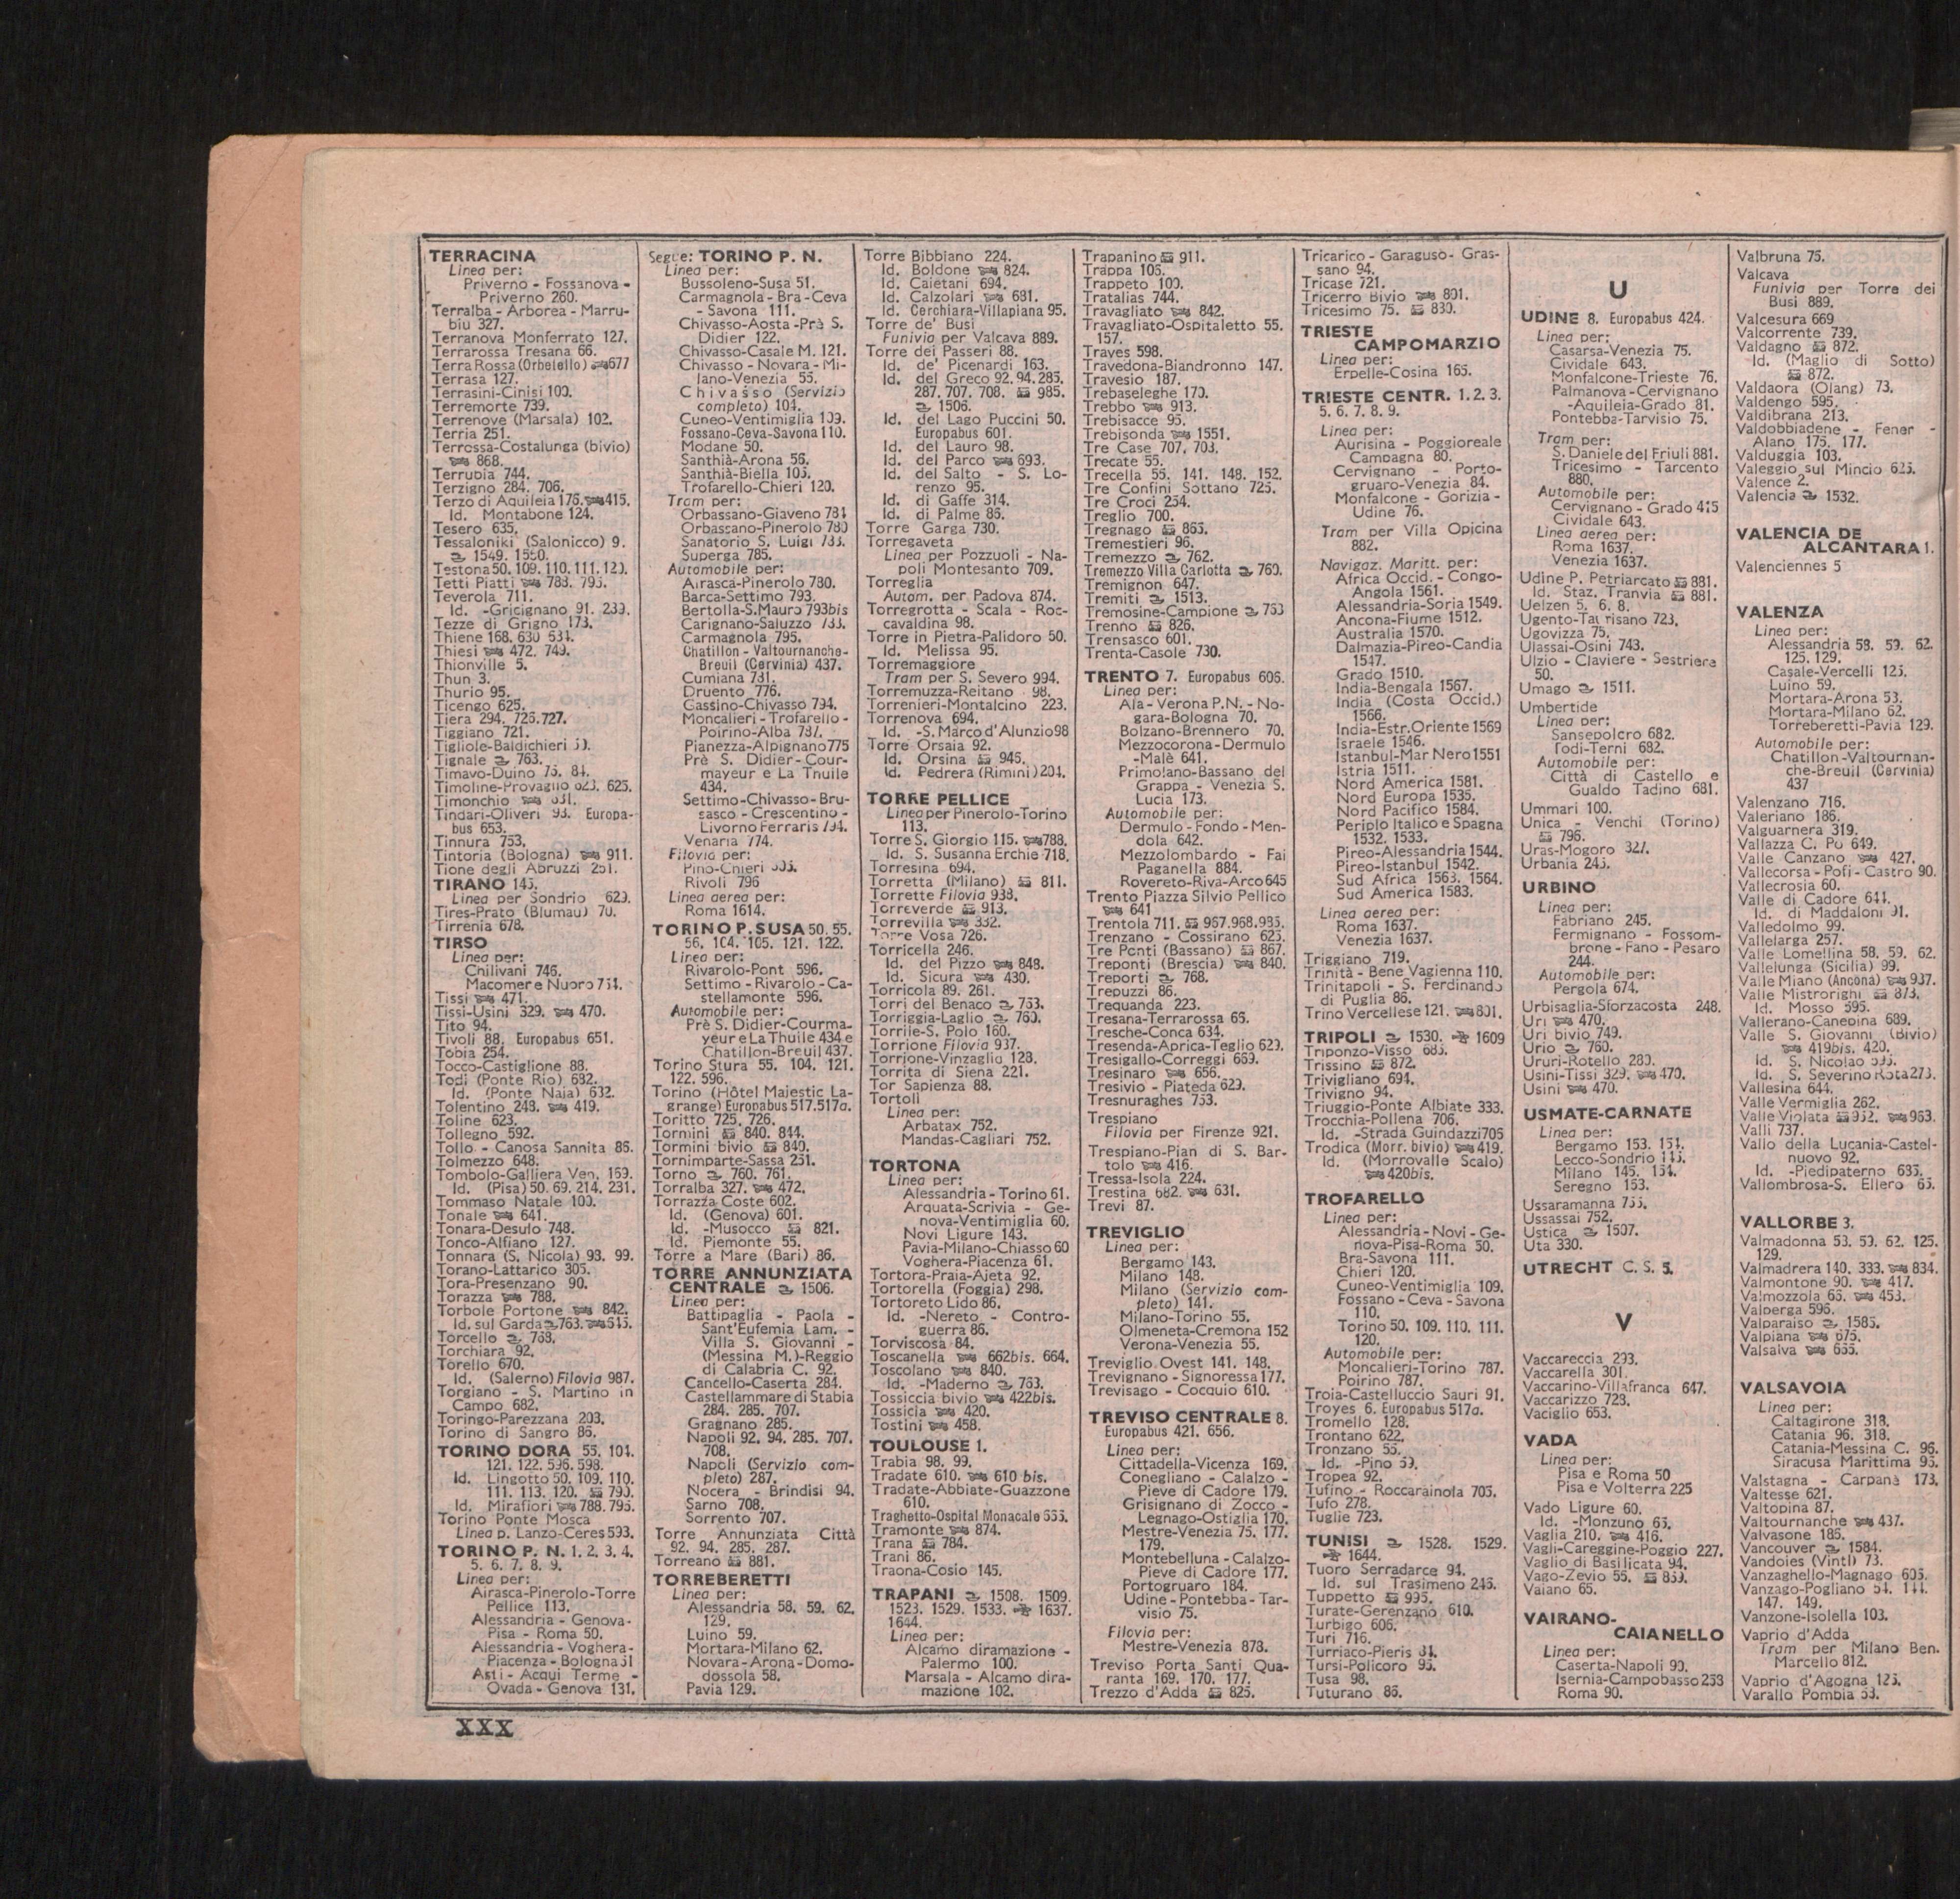 TERRACINA
Linea per:
Priverno - Fossanova -
Priverno 260.
Terralba - Arborea - Marru-
biu 327.
Terranova Monferrato 127.
Terrarossa Tresana 66.
Terra Rossa (Orbetello) 677
Terrasa 127.
Terrasini-Cinisi 100.
Terremorte 739.
Terrenove (Marsala) 102.
Terria 251.
Terrossa-Costalunga (bivio)
868.
Terrubia 744.
Terzigno 284. 706.
Terzo di Aquileia 176. 415.
Id. Montabone 124.
Tesero 635.
Tessaloniki (Salonicco) 9.
1549. 1550.
Testona 50. 109. 110. 111. 120.
Tetti Piatti 788. 795.
Teverola 711.
Id. -Gricignano 91. 239.
Tezze di Grigno 173.
Thiene 168. 630 634.
Thiesi 472. 749.
Thionville 5.
Thun 3.
Thurio 95.
Ticengo 625.
Tiera 294. 726.727.
Tiggiano 721.
Tigliole-Baldichieri
Tignale 763.
Timavo-Duino 76. 84.
Timoline-Provaglio 623. 625.
Timonchio 631.
Tindari-Oliveri 98. Europa-
bus 653.
Tinnura 753.
Tintoria (Bologna) 911.
Tione degli Abruzzi 251.
TIRANO 145.
Linea per Sondrio 629.
Tires-Prato (Blumau) 70.
Tirrenia 678.
TIRSO
Linea per:
Chilivani 746.
Macomer e Nuoro 754.
Tissi 471.
Tissi-Usini 329. 470.
Tito 94.
Tivoli 88. Europabus 651.
Tobia 254.
Tocco-Castiglione 88.
Todi (Ponte Rio) 682.
Id. (Ponte Naia) 682.
Tolentino 248. 419.
Toline 623.
Tollegno 592.
Tollo - Canosa Sannita 86.
Tolmezzo 648.
Tombolo-Galliera Ven. 169.
Id. (Pisa) 50. 69. 214. 231.
Tommaso Natale 100.
Tonale 641.
Tonara-Desulo 748.
Tonco-Alfiano 127.
Tonnara (S. Nicola) 98. 99.
Torano-Lattarico 305.
Tora-Presenzano 90.
Torazza 788.
Torbole Portone 842.
Id. sul Garda 763. 645.
Torcello 768.
Torchiara 92.
Torello 670.
Id. (Salerno) Filovia 987.
Torgiano - S. Martino in
Campo 682.
Toringo-Parezzana 203.
Torino di Sangro 86.
TORINO DORA 55. 104.
121. 122. 596. 598.
Id. Lingotto 50. 109. 110.
111. 113. 120. 790.
Id. Mirafiori 788. 795.
Torino Ponte Mosca
Linea p. Lanzo-Ceres 593.
TORINO P. N. 1. 2. 3. 4.
5. 6. 7. 8. 9.
Linea per:
Airasca-Pinerolo-Torre
Pellice 113.
Alessandria - Genova-
Pisa - Roma 50.
Alessandria - Voghera-
Piacenza - Bologna 51
Asti - Acqui Terme -
Ovada - Genova 131.
Segue: TORINO P. N.
Linea per:
Bussoleno-Susa 51.
Carmagnola - Bra - Ceva
- Savona 111.
Chivasso-Aosta - Prè S.
Didier 122.
Chivasso-Casale M. 121.
Chivasso - Novara - Mi-
lano-Venezia 55.
Chivasso (Servizio
completo) 104.
Cuneo-Ventimiglia 109.
Fossano-Ceva-Savona 110.
Modane 50.
Santhià-Arona 56.
Santhià-Biella 105.
Trofarello-Chieri 120.
Tram per:
Orbassano-Giaveno 781
Orbassano-Pinerolo 780
Sanatorio S. Luigi 783.
Superga 785.
Automobile per:
Airasca-Pinerolo 780.
Barca-Settimo 793.
Bertolla-S. Mauro 793bis
Carignano-Saluzzo 783.
Carmagnola 795.
Chatillon - Valtournanche-
Breuil (Cervinia) 437.
Cumiana 781.
Druento 776.
Gassino-Chivasso 794.
Moncalieri - Trofarello -
Poirino-Alba 787.
Pianezza-Alpignano 775
Prè S. Didier - Cour-
mayeur e La Thuile
434.
Settimo-Chivasso - Bru-
sasco - Crescentino -
Livorno Ferraris 794.
Venaria 774.
Filovia per:
Pino-Chieri
Rivoli 796
Linea aerea per:
Roma 1614.
TORINO P. SUSA 50. 55.
56. 104. 105. 121. 122.
Linea per:
Rivarolo-Pont 596.
Settimo - Rivarolo - Ca-
stellamonte 596.
Automobile per:
Prè S. Didier-Courma-
yeur e La Thuile 434 e
Chatillon-Breuil 437.
Torino Stura 55. 104. 121.
122. 596.
Torino (Hôtel Majestic La-
grange) Europabus 517.517a.
Toritto 725. 726.
Tormini 840. 844.
Tormini bivio 840.
Tornimparte-Sassa 251.
Torno 760. 761.
Torralba 327. 472.
Torrazza Coste 602.
Id. (Genova) 601.
Id. -Musocco 821.
Id. Piemonte 55.
Torre a Mare (Bari) 86.
TORRE ANNUNZIATA
CENTRALE 1506.
Linea per:
Battipaglia - Paola -
Sant'Eufemia Lam. -
Villa S. Giovanni -
(Messina M.)-Reggio
di Calabria C. 92.
Cancello-Caserta 284.
Castellammare di Stabia
284. 285. 707.
Gragnano 285.
Napoli 92. 94. 285. 707.
708.
Napoli (Servizio com-
pleto) 287.
Nocera - Brindisi 94.
Sarno 708.
Sorrento 707.
Torre Annunziata Città
92. 94. 285. 287.
Torreano 881.
TORREBERETTI
Linea per:
Alessandria 58. 59. 62.
129.
Luino 59.
Mortara-Milano 62.
Novara-Arona-Domo-
dossola 58.
Pavia 129.
Torre Bibbiano 224.
Id. Boldone 824.
Id. Caietani 694.
Id. Calzolari 681.
Id. Cerchiara-Villapiana 95.
Torre de' Busi
Funivia per Valcava 889.
Torre dei Passeri 88.
Id. de' Picenardi 163.
Id. del Greco 92. 94. 285.
287. 707. 708. 985.
1506.
Id. del Lago Puccini 50.
Europabus 601.
Id. del Lauro 98.
Id. del Parco 693.
Id. del Salto - S. Lo-
renzo 95.
Id. di Gaffe 314.
Id. di Palme 86.
Torre Garga 730.
Torregaveta
Linea per Pozzuoli - Na-
poli Montesanto 709.
Torreglia
Autom. per Padova 874.
Torregrotta - Scala - Roc-
cavaldina 98.
Torre in Pietra-Palidoro 50.
Id. Melissa 95.
Torremaggiore
Tram per S. Severo 994.
Torremuzza-Reitano 98.
Torrenieri-Montalcino 223.
Torrenova 694.
Id. -S. Marco d'Alunzio 98
Torre Orsaia 92.
Id. Orsina 945.
Id. Pedrera (Rimini) 204.
TORRE PELLICE
Linea per Pinerolo-Torino
113.
Torre S. Giorgio 115. 788.
Id. S. Susanna Erchie 718.
Torresina 694.
Torretta (Milano) 811.
Torrette Filovia 938.
Torreverde 913.
Torrevilla 332.
Torre Vosa 726.
Torricella 246.
Id. del Pizzo 848.
Id. Sicura 430.
Torricola 89. 261.
Torri del Benaco 763.
Torriggia-Laglio 760.
Torrile-S. Polo 160.
Torrione Filovia 937.
Torrione-Vinzaglio 128.
Torrita di Siena 221.
Tor Sapienza 88.
Tortolì
Linea per:
Arbatax 752.
Mandas-Cagliari 752.
TORTONA
Linea per:
Alessandria - Torino 61.
Arquata-Scrivia - Ge-
nova-Ventimiglia 60.
Novi Ligure 143.
Pavia-Milano-Chiasso 60
Voghera-Piacenza 61.
Tortora-Praia-Ajeta 92.
Tortorella (Foggia) 298.
Tortoreto Lido 86.
Id. -Nereto - Contro-
guerra 86.
Torviscosa 84.
Toscanella 662bis. 664.
Toscolano 840.
Id. -Maderno 763.
Tossiccia bivio 422bis.
Tossicia 420.
Tostini 458.
TOULOUSE 1.
Trabia 98. 99.
Tradate 610. 610 bis.
Tradate-Abbiate-Guazzone
610.
Traghetto-Ospital Monacale 665.
Tramonte 874.
Trana 784.
Trani 86.
Traona-Cosio 145.
TRAPANI 1508. 1509.
1523. 1529. 1533. 1637.
1644.
Linea per:
Alcamo diramazione -
Palermo 100.
Marsala - Alcamo dira-
mazione 102.
Trapanino 911.
Trappa 106.
Trappeto 100.
Tratalias 744.
Travagliato 842.
Travagliato-Ospitaletto 55.
157.
Traves 598.
Travedona-Biandronno 147.
Travesio 187.
Trebaseleghe 170.
Trebbo 913.
Trebisacce 95.
Trebisonda 1551.
Tre Case 707. 703.
Trecate 55.
Trecella 55. 141. 148. 152.
Tre Confini Sottano 725.
Tre Croci 254.
Treglio 700.
Tregnago 865.
Tremestieri 96.
Tremezzo 762.
Tremezzo Villa Carlotta 760.
Tremignon 647.
Tremiti 1513.
Tremosine-Campione 763
Trenno 826.
Trensasco 601.
Trenta-Casole 730.
TRENTO 7. Europabus 606.
Linea per:
Ala - Verona P.N. - No-
gara-Bologna 70.
Bolzano-Brennero 70.
Mezzocorona-Dermulo
-Malè 641.
Primolano-Bassano del
Grappa - Venezia S.
Lucia 173.
Automobile per:
Dermulo - Fondo - Men-
dola 642.
Mezzolombardo - Fai
Paganella 884.
Rovereto-Riva-Arco 645
Trento Piazza Silvio Pellico
641
Trentola 711. 967.968.985.
Trenzano - Cossirano 625.
Tre Ponti (Bassano) 867.
Treponti (Brescia) 840.
Treporti 768.
Trepuzzi 86.
Trequanda 223.
Tresana-Terrarossa 66.
Tresche-Conca 634.
Tresenda-Aprica-Teglio 629.
Tresigallo-Correggi 669.
Tresinaro 656.
Tresivio - Piateda 629.
Tresnuraghes 753.
Trespiano
Filovia per Firenze 921.
Trespiano-Pian di S. Bar-
tolo 416.
Tressa-Isola 224.
Trestina 682. 631.
Trevi 87.
TREVIGLIO
Linea per:
Bergamo 143.
Milano 148.
Milano (Servizio com-
pleto) 141.
Milano-Torino 55.
Olmeneta-Cremona 152
Verona-Venezia 55.
Treviglio Ovest 141. 148.
Trevignano - Signoressa 177.
Trevisago - Cocquio 610.
TREVISO CENTRALE 8.
Europabus 421. 656.
Linea per:
Cittadella-Vicenza 169.
Conegliano - Calalzo -
Pieve di Cadore 179.
Grisignano di Zocco -
Legnago-Ostiglia 170.
Mestre-Venezia 75. 177.
179.
Montebelluna - Calalzo-
Pieve di Cadore 177.
Portogruaro 184.
Udine - Pontebba - Tar-
visio 75.
Filovia per:
Mestre-Venezia 878.
Treviso Porta Santi Qua-
ranta 169. 170. 177.
Trezzo d'Adda 825.
Tricarico - Garaguso - Gras-
sano 94.
Tricase 721.
Tricerro Bivio 801.
Tricesimo 75. 880.
TRIESTE
CAMPOMARZIO
Linea per:
Erpelle-Cosina 165.
TRIESTE CENTR. 1. 2. 3.
5. 6. 7. 8. 9.
Linea per:
Aurisina - Poggioreale
Campagna 80.
Cervignano - Porto-
gruaro-Venezia 84.
Monfalcone - Gorizia -
Udine 76.
Tram per Villa Opicina
882.
Navigaz. Maritt. per:
Africa Occid. - Congo-
Angola 1561.
Alessandria-Soria 1549.
Ancona-Fiume 1512.
Australia 1570.
Dalmazia-Pireo-Candia
1547.
Grado 1510.
India-Bengala 1567.
India (Costa Occid.)
1566.
India-Estr. Oriente 1569
Israele 1546.
Istanbul-Mar Nero 1551
Istria 1511.
Nord America 1581.
Nord Europa 1535.
Nord Pacifico 1584.
Periplo Italico e Spagna
1532. 1533.
Pireo-Alessandria 1544.
Pireo-Istanbul 1542.
Sud Africa 1563. 1564.
Sud America 1583.
Linea aerea per:
Roma 1637.
Venezia 1637.
Triggiano 719.
Trinità - Bene Vagienna 110.
Trinitapoli - S. Ferdinando
di Puglia 86.
Trino Vercellese 121. 801.
TRIPOLI 1530. 1609
Triponzo-Visso 685.
Trissino 872.
Trivigliano 694.
Trivigno 94.
Triuggio-Ponte Albiate 333.
Trocchia-Pollena 706.
Id. -Strada Guindazzi 706
Trodica (Morr. bivio) 419.
Id. (Morrovalle Scalo)
420bis.
TROFARELLO
Linea per:
Alessandria - Novi - Ge-
nova-Pisa-Roma 50.
Bra-Savona 111.
Chieri 120.
Cuneo-Ventimiglia 109.
Fossano - Ceva - Savona
110.
Torino 50. 109. 110. 111.
120.
Automobile per:
Moncalieri-Torino 787.
Poirino 787.
Troia-Castelluccio Sauri 91.
Troyes 6. Europabus 517a.
Tromello 128.
Trontano 622.
Tronzano 55.
Id. -Pino 59.
Tropea 92.
Tufino - Roccarainola 705.
Tufo 278.
Tuglie 723.
TUNISI 1528. 1529.
1644.
Tuoro Serradarce 94.
Id. sul Trasimeno 246.
Tuppetto 995.
Turate-Gerenzano 610.
Turbigo 606.
Turi 716.
Turriaco-Pieris 84.
Tursi-Policoro 95.
Tusa 98.
Tuturano 86.
U
UDINE 8. Europabus 424.
Linea per:
Casarsa-Venezia 75.
Cividale 643.
Monfalcone-Trieste 76.
Palmanova-Cervignano
-Aquileia-Grado 81.
Pontebba-Tarvisio 75.
Tram per:
S. Daniele del Friuli 881.
Tricesimo - Tarcento
880.
Automobile per:
Cervignano - Grado 415
Cividale 643.
Linea aerea per:
Roma 1637.
Venezia 1637.
Udine P. Petriarcato 881.
Id. Staz. Tranvia 881.
Uelzen 5. 6. 8.
Ugento-Taurisano 723.
Ugovizza 75.
Ulassai-Osini 743.
Ulzio - Claviere - Sestriere
50.
Umago 1511.
Umbertide
Linea per:
Sansepolcro 682.
Todi-Terni 682.
Automobile per:
Città di Castello e
Gualdo Tadino 681.
Ummari 100.
Unica - Venchi (Torino)
796.
Uras-Mogoro 327.
Urbania 245.
URBINO
Linea per:
Fabriano 245.
Fermignano - Fossom-
brone - Fano - Pesaro
244.
Automobile per:
Pergola 674.
Urbisaglia-Sforzacosta 248.
Uri 470.
Uri bivio 749.
Urio 760.
Ururi-Rotello 280.
Usini-Tissi 329. 470.
Usini 470.
USMATE-CARNATE
Linea per:
Bergamo 153. 154.
Lecco-Sondrio 145.
Milano 145. 154.
Seregno 153.
Ussaramanna 755.
Ussassai 752.
Ustica 1507.
Uta 330.
UTRECHT C. S. 5.
V
Vaccareccia 293.
Vaccarella 301.
Vaccarino-Villafranca 647.
Vaccarizzo 723.
Vaciglio 653.
VADA
Linea per:
Pisa e Roma 50
Pisa e Volterra 225
Vado Ligure 60.
Id. -Monzuno 65.
Vaglia 210. 416.
Vagli-Careggine-Poggio 227.
Vaglio di Basilicata 94.
Vago-Zevio 55. 859.
Vaiano 65.
VAIRANO-
CAIANELLO
Linea per:
Caserta-Napoli 90.
Isernia-Campobasso 258
Roma 90.
Valbruna 75.
Valcava
Funivia per Torre dei
Busi 889.
Valcesura 669
Valcorrente 739.
Valdagno 872.
Id. (Maglio di Sotto)
872.
Valdaora (Olang) 73.
Valdengo 595.
Valdibrana 213.
Valdobbiadene - Fener -
Alano 175. 177.
Valduggia 103.
Valeggio sul Mincio 625.
Valence 2.
Valencia 1532.
VALENCIA DE
ALCANTARA 1.
Valenciennes 5
VALENZA
Linea per:
Alessandria 58. 59. 62.
125. 129.
Casale-Vercelli 125.
Luino 59.
Mortara-Arona 53.
Mortara-Milano 62.
Torreberetti-Pavia 129.
Automobile per:
Chatillon-Valtournan-
che-Breuil (Cervinia)
437
Valenzano 716.
Valeriano 186.
Valguarnera 319.
Vallazza C. Po 649.
Valle Canzano 427.
Vallecorsa - Pofi - Castro 90.
Vallecrosia 60.
Valle di Cadore 644.
Id. di Maddaloni 91.
Valledolmo 99.
Vallelarga 257.
Valle Lomellina 58. 59. 62.
Vallelunga (Sicilia) 99.
Valle Miano (Ancona) 937.
Valle Mistrorighi 873.
Id. Mosso 595.
Vallerano-Canepina 689.
Valle S. Giovanni (Bivio)
419bis. 420.
Id. S. Nicolao 595.
Id. S. Severino Rota 273.
Vallesina 644.
Valle Vermiglia 262.
Valle Violata 952. 963.
Valli 737.
Vallo della Lucania-Castel-
nuovo 92.
Id. -Piedipaterno 685.
Vallombrosa-S. Ellero 65.
VALLORBE 3.
Valmadonna 53. 59. 62. 125.
129.
Valmadrera 140. 333. 834.
Valmontone 90. 417.
Valmozzola 66. 453.
Valperga 596.
Valparaiso 1585.
Valpiana 675.
Valsalva 655.
VALSAVOIA
Linea per:
Caltagirone 318.
Catania 96. 318.
Catania-Messina C. 96.
Siracusa Marittima 96.
Valstagna - Carpanè 173.
Valtesse 621.
Valtopina 87.
Valtournanche 437.
Valvasone 185.
Vancouver 1584.
Vandoies (Vintl) 73.
Vanzaghello-Magnago 606.
Vanzago-Pogliano 54. 144.
147. 149.
Vanzone-Isolella 103.
Vaprio d'Adda
Tram per Milano Ben.
Marcello 812.
Vaprio d'Agogna 125.
Varallo Pombia 53.
XXX